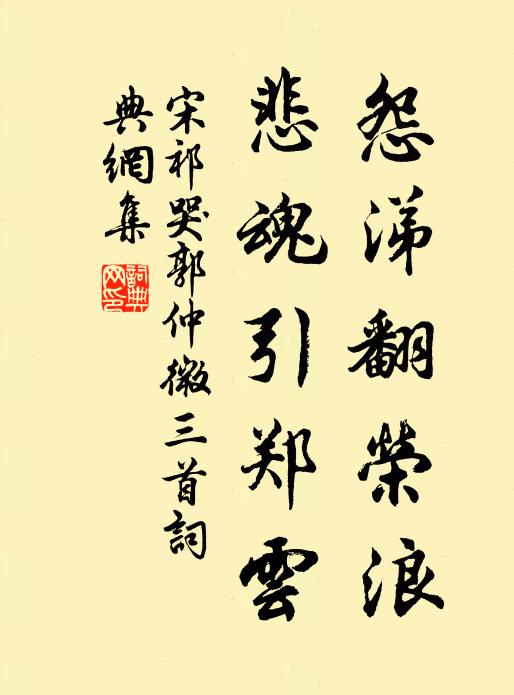 怨涕翻榮浪
悲魂引郑雲
宋祁哭郭仲微三首詞
典網集
詞典网印